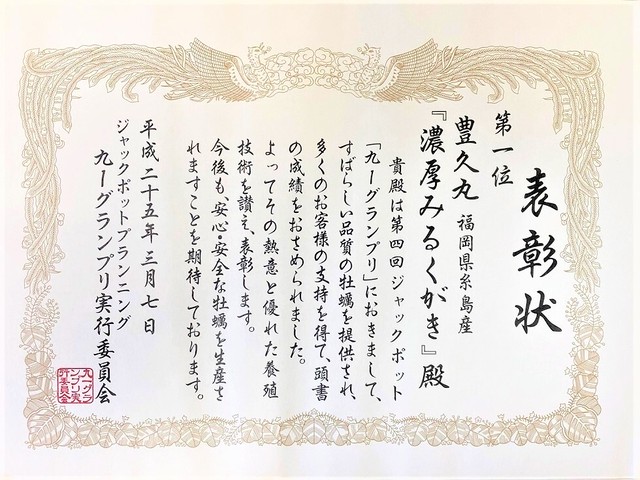 表彰状
第一位
豊久丸 福岡県糸島産
『濃厚みるくがき』殿
貴殿は第四回ジャックポット
「九一グランプリ」におきまして、
すばらしい品質の牡蠣を提供され、
多くのお客様の支持を得て、頭書
の成績をおさめられました。
よってその熱意と優れた養殖
技術を讃え、表彰します。
今後も、安心・安全な牡蠣を生産さ
れますことを期待しております。
平成二十五年三月七日
ジャックポットプランニング
九一グランプリ実行委員会
九一グラ
ンプリ実
行委員会